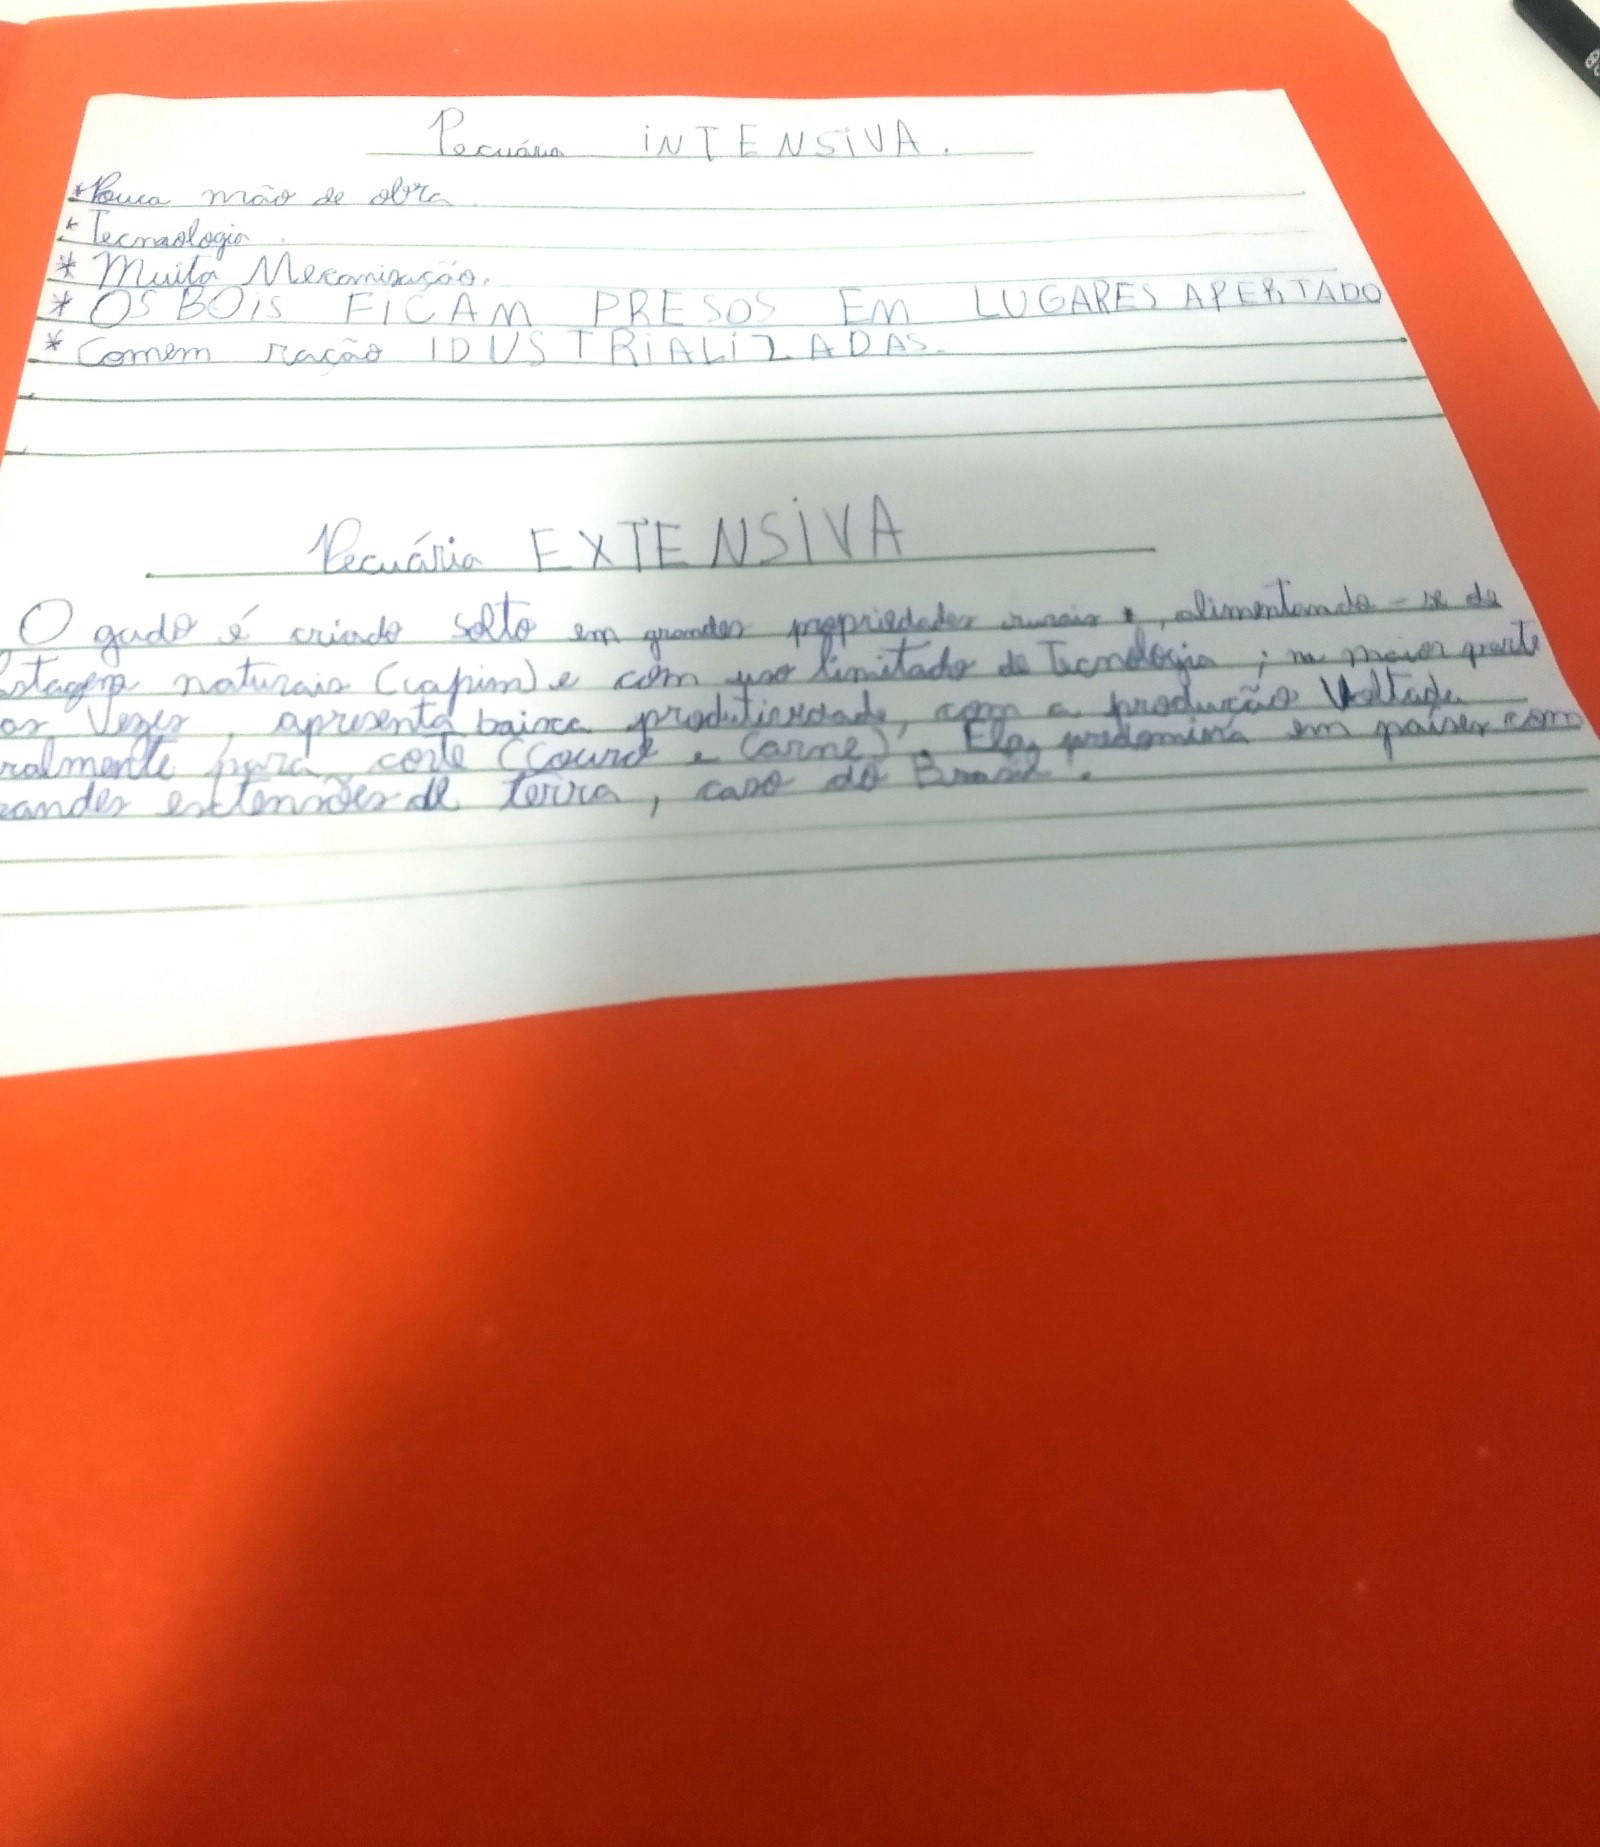 Pecuária INTENSIVA.
* Pouca mão de obra.
* Tecnologia.
* Muita Mecanização.
* OS BOIS FICAM PRESOS EM LUGARES APERTADO
* Comem ração IDUSTRIALIZADAS.
Pecuária EXTENSIVA
O gado é criado solto em grandes propriedades rurais, alimentando-se de
stagens naturais (capim) e com uso limitado de Tecnologia; na maior parte
as Vezes, apresenta baixa produtividade, com a produção Voltada
ralmente para corte (Couro e Carne). Ela predomina em países com
randes extensões de terra, caso do Brasil.